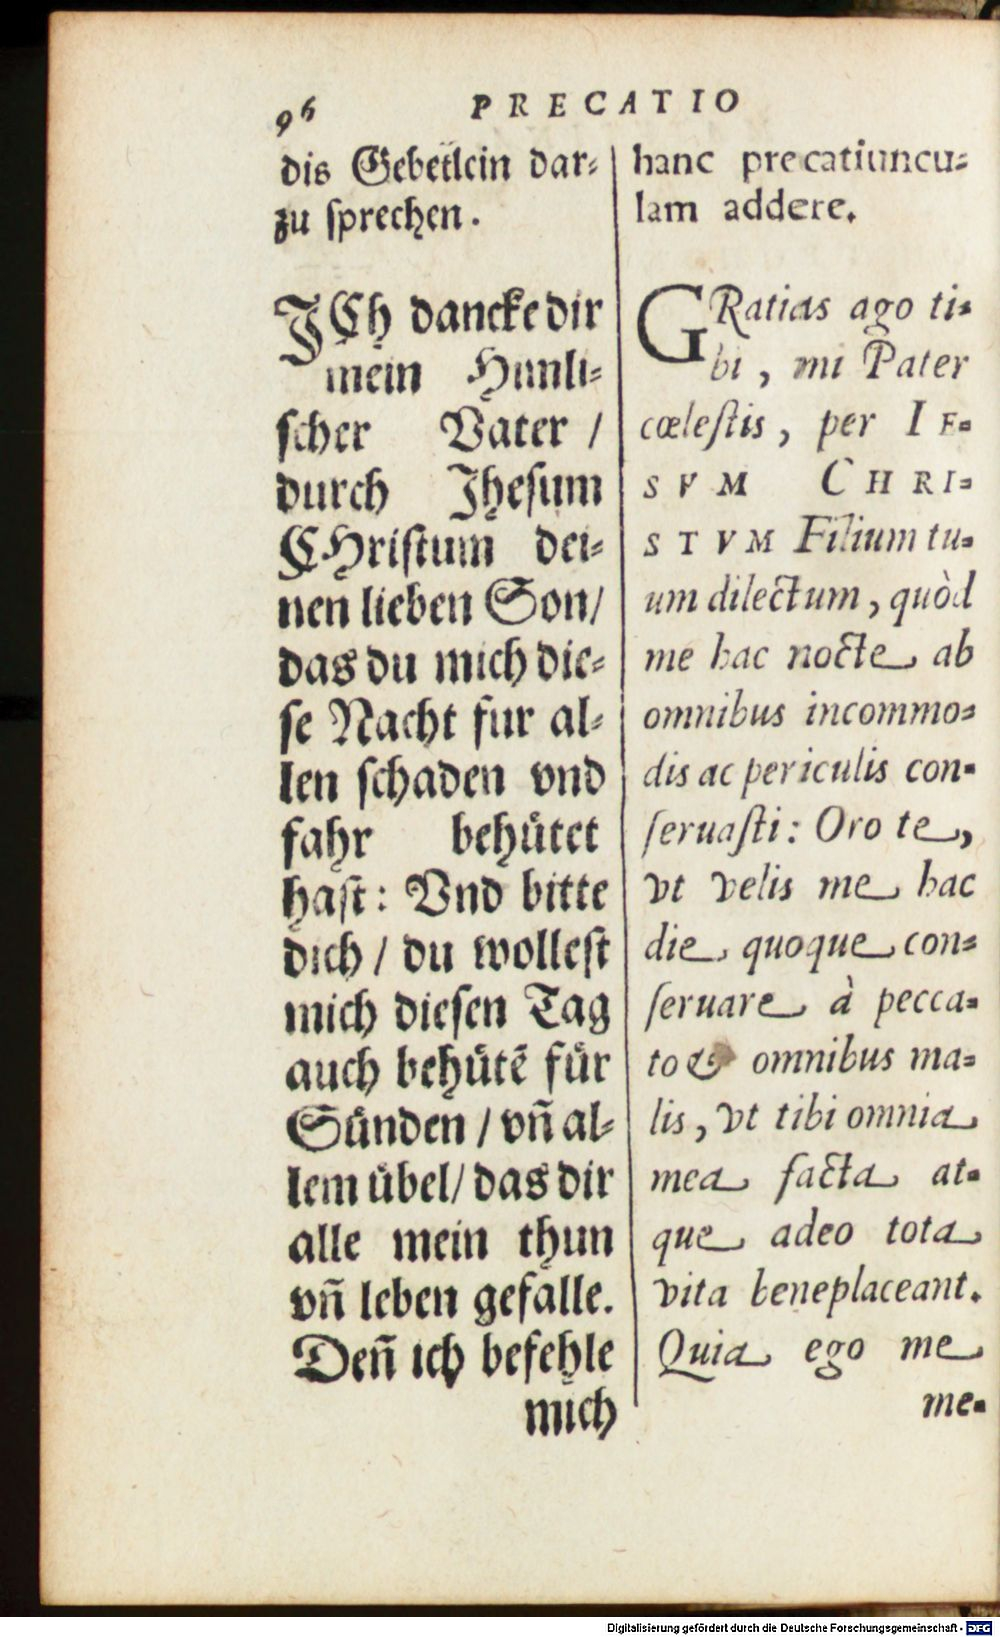 96
PRECATIO
dis Gebetlein dar-
zu sprechen.
ICh dancke dir
mein Himli-
scher Vater /
durch Jhesum
CHristum dei-
nen lieben Son/
das du mich die-
se Nacht fur al-
len schaden vnd
fahr behütet
hast: Vnd bitte
dich / du wollest
mich diesen Tag
auch behütē für
Sünden / vñ al-
lem übel/ das dir
alle mein thun
vñ leben gefalle.
Deñ ich befehle
mich
hanc precatiuncu-
lam addere.
GRatias ago ti-
bi, mi Pater
cœlestis, per IE-
SVM CHRI-
STVM Filium tu-
um dilectum, quòd
me hac nocte ab
omnibus incommo-
dis ac periculis con-
seruasti: Oro te,
vt velis me hac
die quoque con-
seruare à pecca-
to & omnibus ma-
lis, vt tibi omnia
mea facta at-
que adeo tota
vita beneplaceant.
Quia ego me
me-
Digitalisierung gefördert durch die Deutsche Forschungsgemeinschaft - DFG